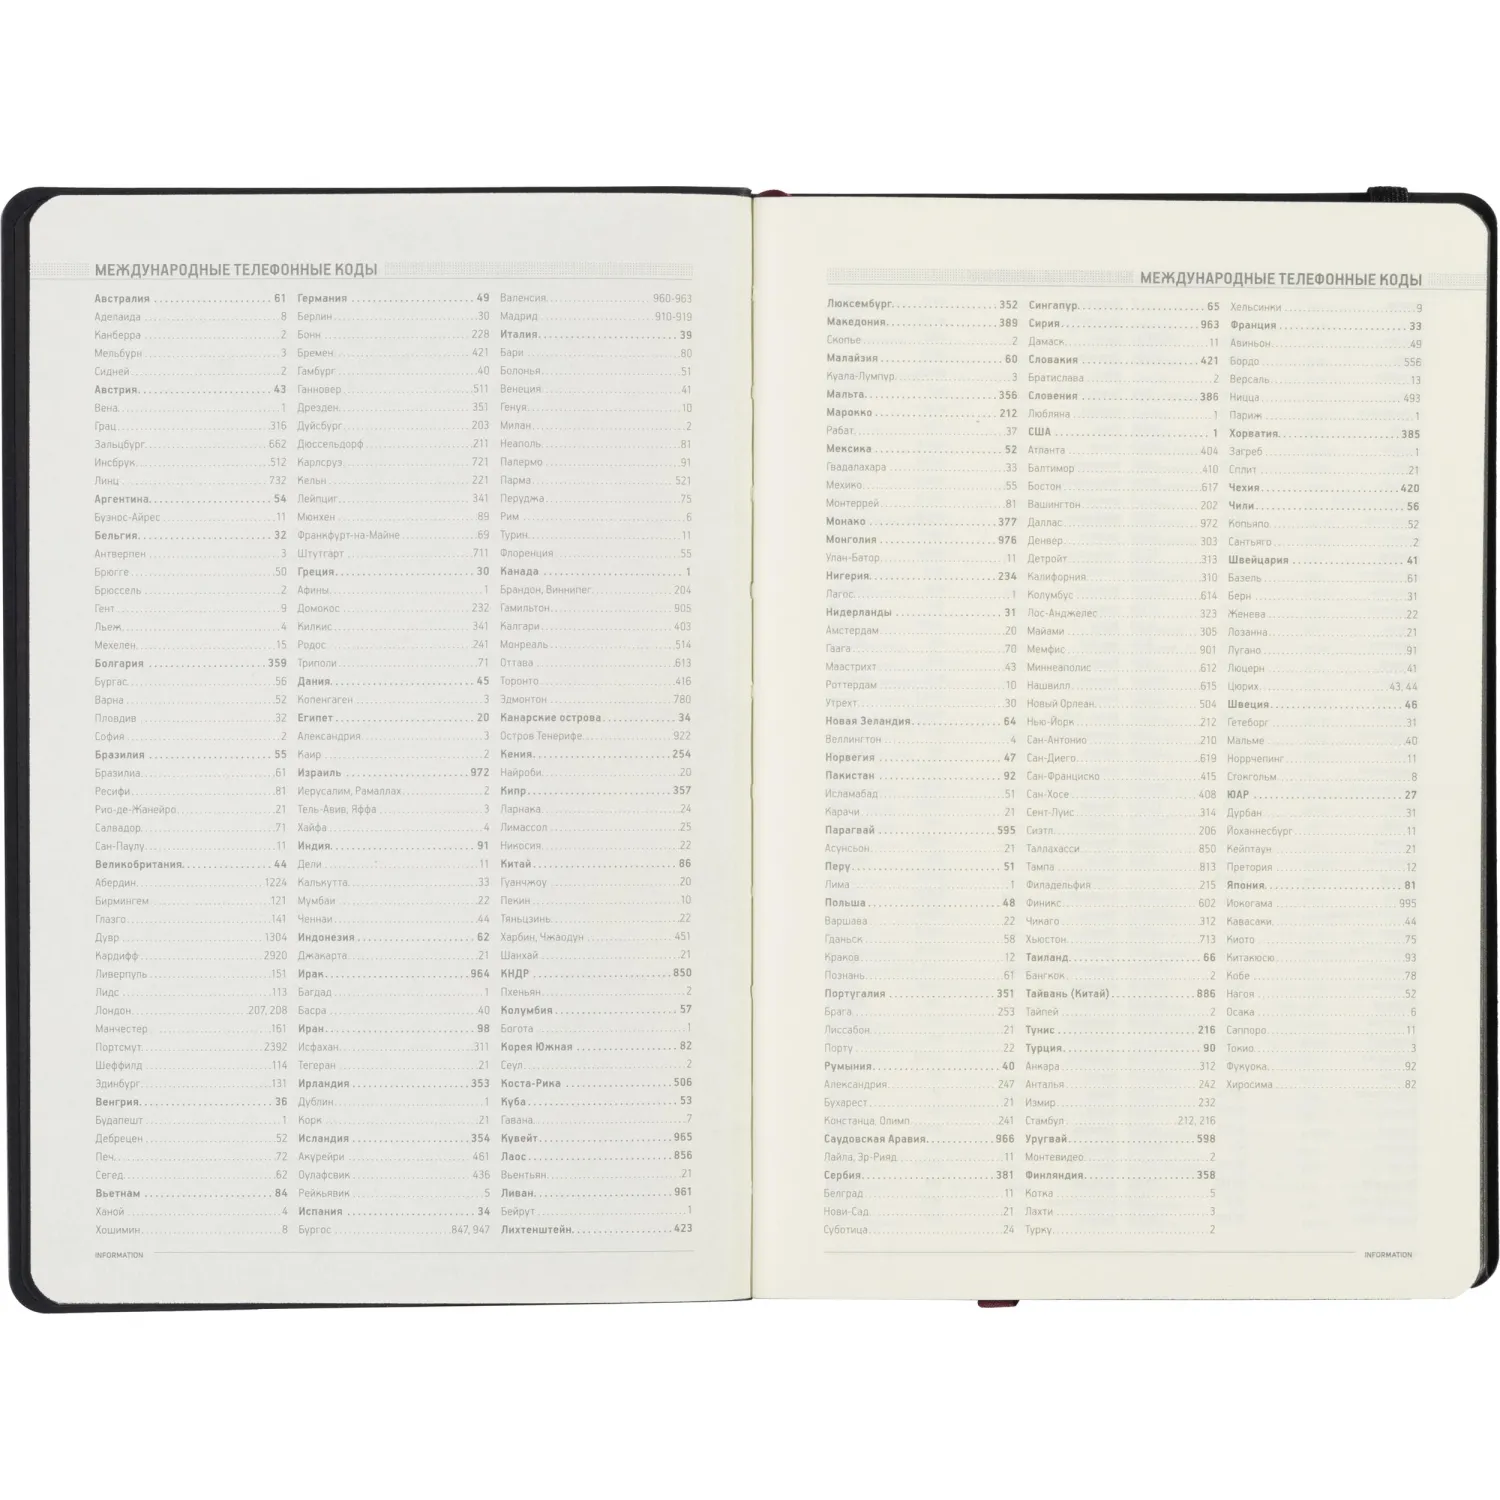 МЕЖДУНАРОДНЫЕ ТЕЛЕФОННЫЕ КОДЫ
Австралия 61
Аделаида 8
Канберра 2
Мельбурн 3
Сидней 2
Австрия 43
Вена 1
Грац 316
Зальцбург 662
Инсбрук 512
Линц 732
Аргентина 54
Буэнос-Айрес 11
Бельгия 32
Антверпен 3
Брюгге 50
Брюссель 2
Гент 9
Льеж 4
Мехелен 15
Болгария 359
Бургас 56
Варна 52
Пловдив 32
София 2
Бразилия 55
Бразилиа 61
Ресифи 81
Рио-де-Жанейро 21
Салвадор 71
Сан-Паулу 11
Великобритания 44
Абердин 1224
Бирмингем 121
Глазго 141
Дувр 1304
Кардифф 2920
Ливерпуль 151
Лидс 113
Лондон 207, 208
Манчестер 161
Портсмут 2392
Шеффилд 114
Эдинбург 131
Венгрия 36
Будапешт 1
Дебрецен 52
Печ 72
Сегед 62
Вьетнам 84
Ханой 4
Хошимин 8
Германия 49
Берлин 30
Бонн 228
Бремен 421
Гамбург 40
Ганновер 511
Дрезден 351
Дуйсбург 203
Дюссельдорф 211
Карлсруэ 721
Кельн 221
Лейпциг 341
Мюнхен 89
Франкфурт-на-Майне 69
Штутгарт 711
Греция 30
Афины 1
Домокос 232
Килкис 341
Родос 241
Триполи 71
Дания 45
Копенгаген 3
Египет 20
Александрия 3
Каир 2
Израиль 972
Иерусалим, Рамаллах 2
Тель-Авив, Яффа 3
Хайфа 4
Индия 91
Дели 11
Калькутта 33
Мумбаи 22
Ченнаи 44
Индонезия 62
Джакарта 21
Ирак 964
Багдад 1
Басра 40
Иран 98
Исфахан 311
Тегеран 21
Ирландия 353
Дублин 1
Корк 21
Исландия 354
Акурейри 461
Оулафсвик 436
Рейкьявик 5
Испания 34
Бургос 847, 947
Валенсия 960-963
Мадрид 910-919
Италия 39
Бари 80
Болонья 51
Венеция 41
Генуя 10
Милан 2
Неаполь 81
Палермо 91
Парма 521
Перуджа 75
Рим 6
Турин 11
Флоренция 55
Канада 1
Брандон, Виннипег 204
Гамильтон 905
Калгари 403
Монреаль 514
Оттава 613
Торонто 416
Эдмонтон 780
Канарские острова 34
Остров Тенерифе 922
Кения 254
Найроби 20
Кипр 357
Ларнака 24
Лимассол 25
Никосия 22
Китай 86
Гуанчжоу 20
Пекин 10
Тяньцзинь 22
Харбин, Чжаодун 451
Шанхай 21
КНДР 850
Пхеньян 2
Колумбия 57
Богота 1
Корея Южная 82
Сеул 2
Коста-Рика 506
Куба 53
Гавана 7
Кувейт 965
Лаос 856
Вьентьян 21
Ливан 961
Бейрут 1
Лихтенштейн 423
INFORMATION
МЕЖДУНАРОДНЫЕ ТЕЛЕФОННЫЕ КОДЫ
Люксембург 352
Македония 389
Скопье 2
Малайзия 60
Куала-Лумпур 3
Мальта 356
Марокко 212
Рабат 37
Мексика 52
Гвадалахара 33
Мехико 55
Монтеррей 81
Монако 377
Монголия 976
Улан-Батор 11
Нигерия 234
Лагос 1
Нидерланды 31
Амстердам 20
Гаага 70
Маастрихт 43
Роттердам 10
Утрехт 30
Новая Зеландия 64
Веллингтон 4
Норвегия 47
Пакистан 92
Исламабад 51
Карачи 21
Парагвай 595
Асунсьон 21
Перу 51
Лима 1
Польша 48
Варшава 22
Гданьск 58
Краков 12
Познань 61
Португалия 351
Брага 253
Лиссабон 21
Порту 22
Румыния 40
Александрия 247
Бухарест 21
Констанца, Олимп 241
Саудовская Аравия 966
Лайла, Эр-Рияд 11
Сербия 381
Белград 11
Нови-Сад 21
Суботица 24
Сингапур 65
Сирия 963
Дамаск 11
Словакия 421
Братислава 2
Словения 386
Любляна 1
США 1
Атланта 404
Балтимор 410
Бостон 617
Вашингтон 202
Даллас 972
Денвер 303
Детройт 313
Калифорния 310
Колумбус 614
Лос-Анджелес 323
Майами 305
Мемфис 901
Миннеаполис 612
Нашвилл 615
Новый Орлеан 504
Нью-Йорк 212
Сан-Антонио 210
Сан-Диего 619
Сан-Франциско 415
Сан-Хосе 408
Сент-Луис 314
Сиэтл 206
Таллахасси 850
Тампа 813
Филадельфия 215
Финикс 602
Чикаго 312
Хьюстон 713
Таиланд 66
Бангкок 2
Тайвань (Китай) 886
Тайпей 2
Тунис 216
Турция 90
Анкара 312
Анталья 242
Измир 232
Стамбул 212, 216
Уругвай 598
Монтевидео 2
Финляндия 358
Котка 5
Лахти 3
Турку 2
Хельсинки 9
Франция 33
Авиньон 49
Бордо 556
Версаль 13
Ницца 493
Париж 1
Хорватия 385
Загреб 1
Сплит 21
Чехия 420
Чили 56
Копьяпо 52
Сантьяго 2
Швейцария 41
Базель 61
Берн 31
Женева 22
Лозанна 21
Лугано 91
Люцерн 41
Цюрих 43, 44
Швеция 46
Гетеборг 31
Мальме 40
Норрчепинг 11
Стокгольм 8
ЮАР 27
Дурбан 31
Йоханнесбург 11
Кейптаун 21
Претория 12
Япония 81
Йокогама 995
Кавасаки 44
Киото 75
Китакюсю 93
Кобе 78
Нагоя 52
Осака 6
Саппоро 11
Токио 3
Фукуока 92
Хиросима 82
INFORMATION